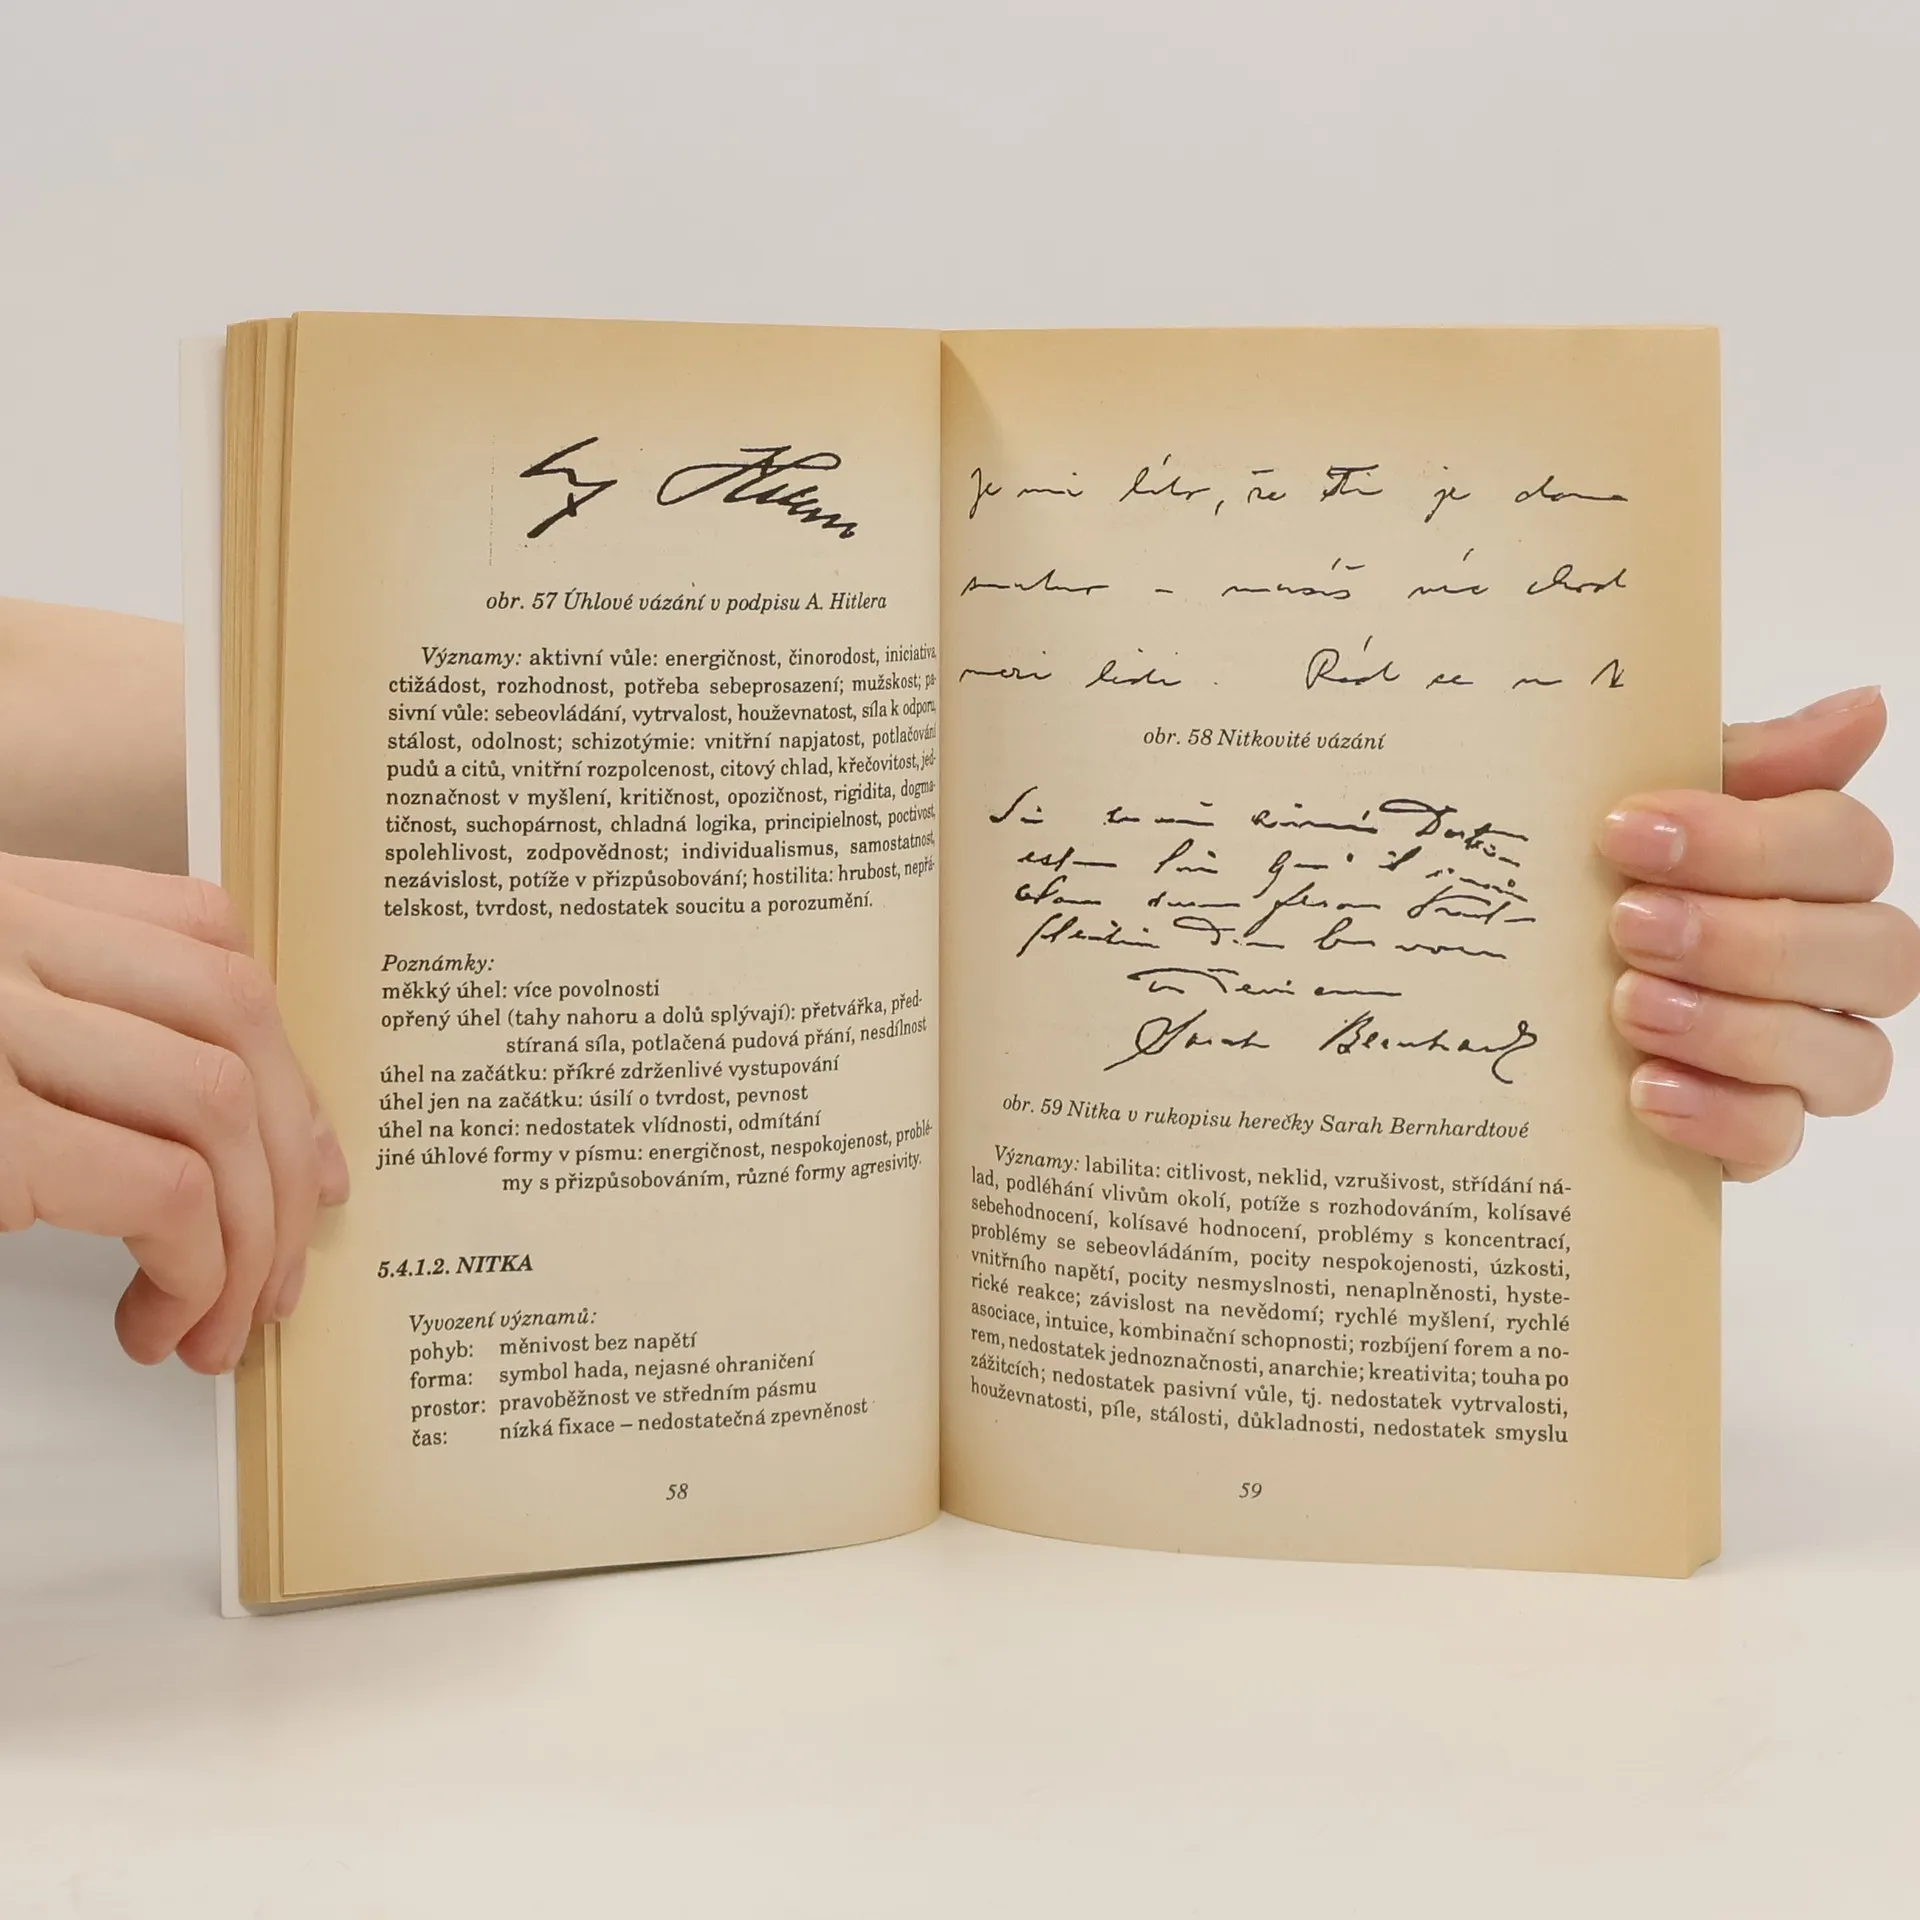 obr. 57 Úhlové vázání v podpisu A. Hitlera
Významy: aktivní vůle: energičnost, činorodost, iniciativa,
ctižádost, rozhodnost, potřeba sebeprosazení; mužskost; pa-
sivní vůle: sebeovládání, vytrvalost, houževnatost, síla k odporu,
stálost, odolnost; schizotýmie: vnitřní napjatost, potlačování
pudů a citů, vnitřní rozpolcenost, citový chlad, křečovitost, jed-
noznačnost v myšlení, kritičnost, opozičnost, rigidita, dogma-
tičnost, suchopárnost, chladná logika, principielnost, poctivost,
spolehlivost, zodpovědnost; individualismus, samostatnost,
nezávislost, potíže v přizpůsobování; hostilita: hrubost, nepřá-
telskost, tvrdost, nedostatek soucitu a porozumění.
Poznámky:
měkký úhel: více povolnosti
opřený úhel (tahy nahoru a dolů splývají): přetvářka, před-
stíraná síla, potlačená pudová přání, nesdílnost
úhel na začátku: příkré zdrženlivé vystupování
úhel jen na začátku: úsilí o tvrdost, pevnost
úhel na konci: nedostatek vlídnosti, odmítání
jiné úhlové formy v písmu: energičnost, nespokojenost, problé-
my s přizpůsobováním, různé formy agresivity.
5.4.1.2. NITKA
Vyvození významů:
pohyb: měnivost bez napětí
forma: symbol hada, nejasné ohraničení
prostor: pravoběžnost ve středním pásmu
čas: nízká fixace – nedostatečná zpevněnost
58
Je mi líto, že Ti je doma
smutno – musíš víc chod
mezi lidi. Rád se u
obr. 58 Nitkovité vázání
Sarah Bernhardt
obr. 59 Nitka v rukopisu herečky Sarah Bernhardtové
Významy: labilita: citlivost, neklid, vzrušivost, střídání ná-
lad, podléhání vlivům okolí, potíže s rozhodováním, kolísavé
sebehodnocení, kolísavé hodnocení, problémy s koncentrací,
problémy se sebeovládáním, pocity nespokojenosti, úzkosti,
vnitřního napětí, pocity nesmyslnosti, nenaplněnosti, hyste-
rické reakce; závislost na nevědomí; rychlé myšlení, rychlé
asociace, intuice, kombinační schopnosti; rozbíjení forem a no-
rem, nedostatek jednoznačnosti, anarchie; kreativita; touha po
zážitcích; nedostatek pasivní vůle, tj. nedostatek vytrvalosti,
houževnatosti, píle, stálosti, důkladnosti, nedostatek smyslu
59